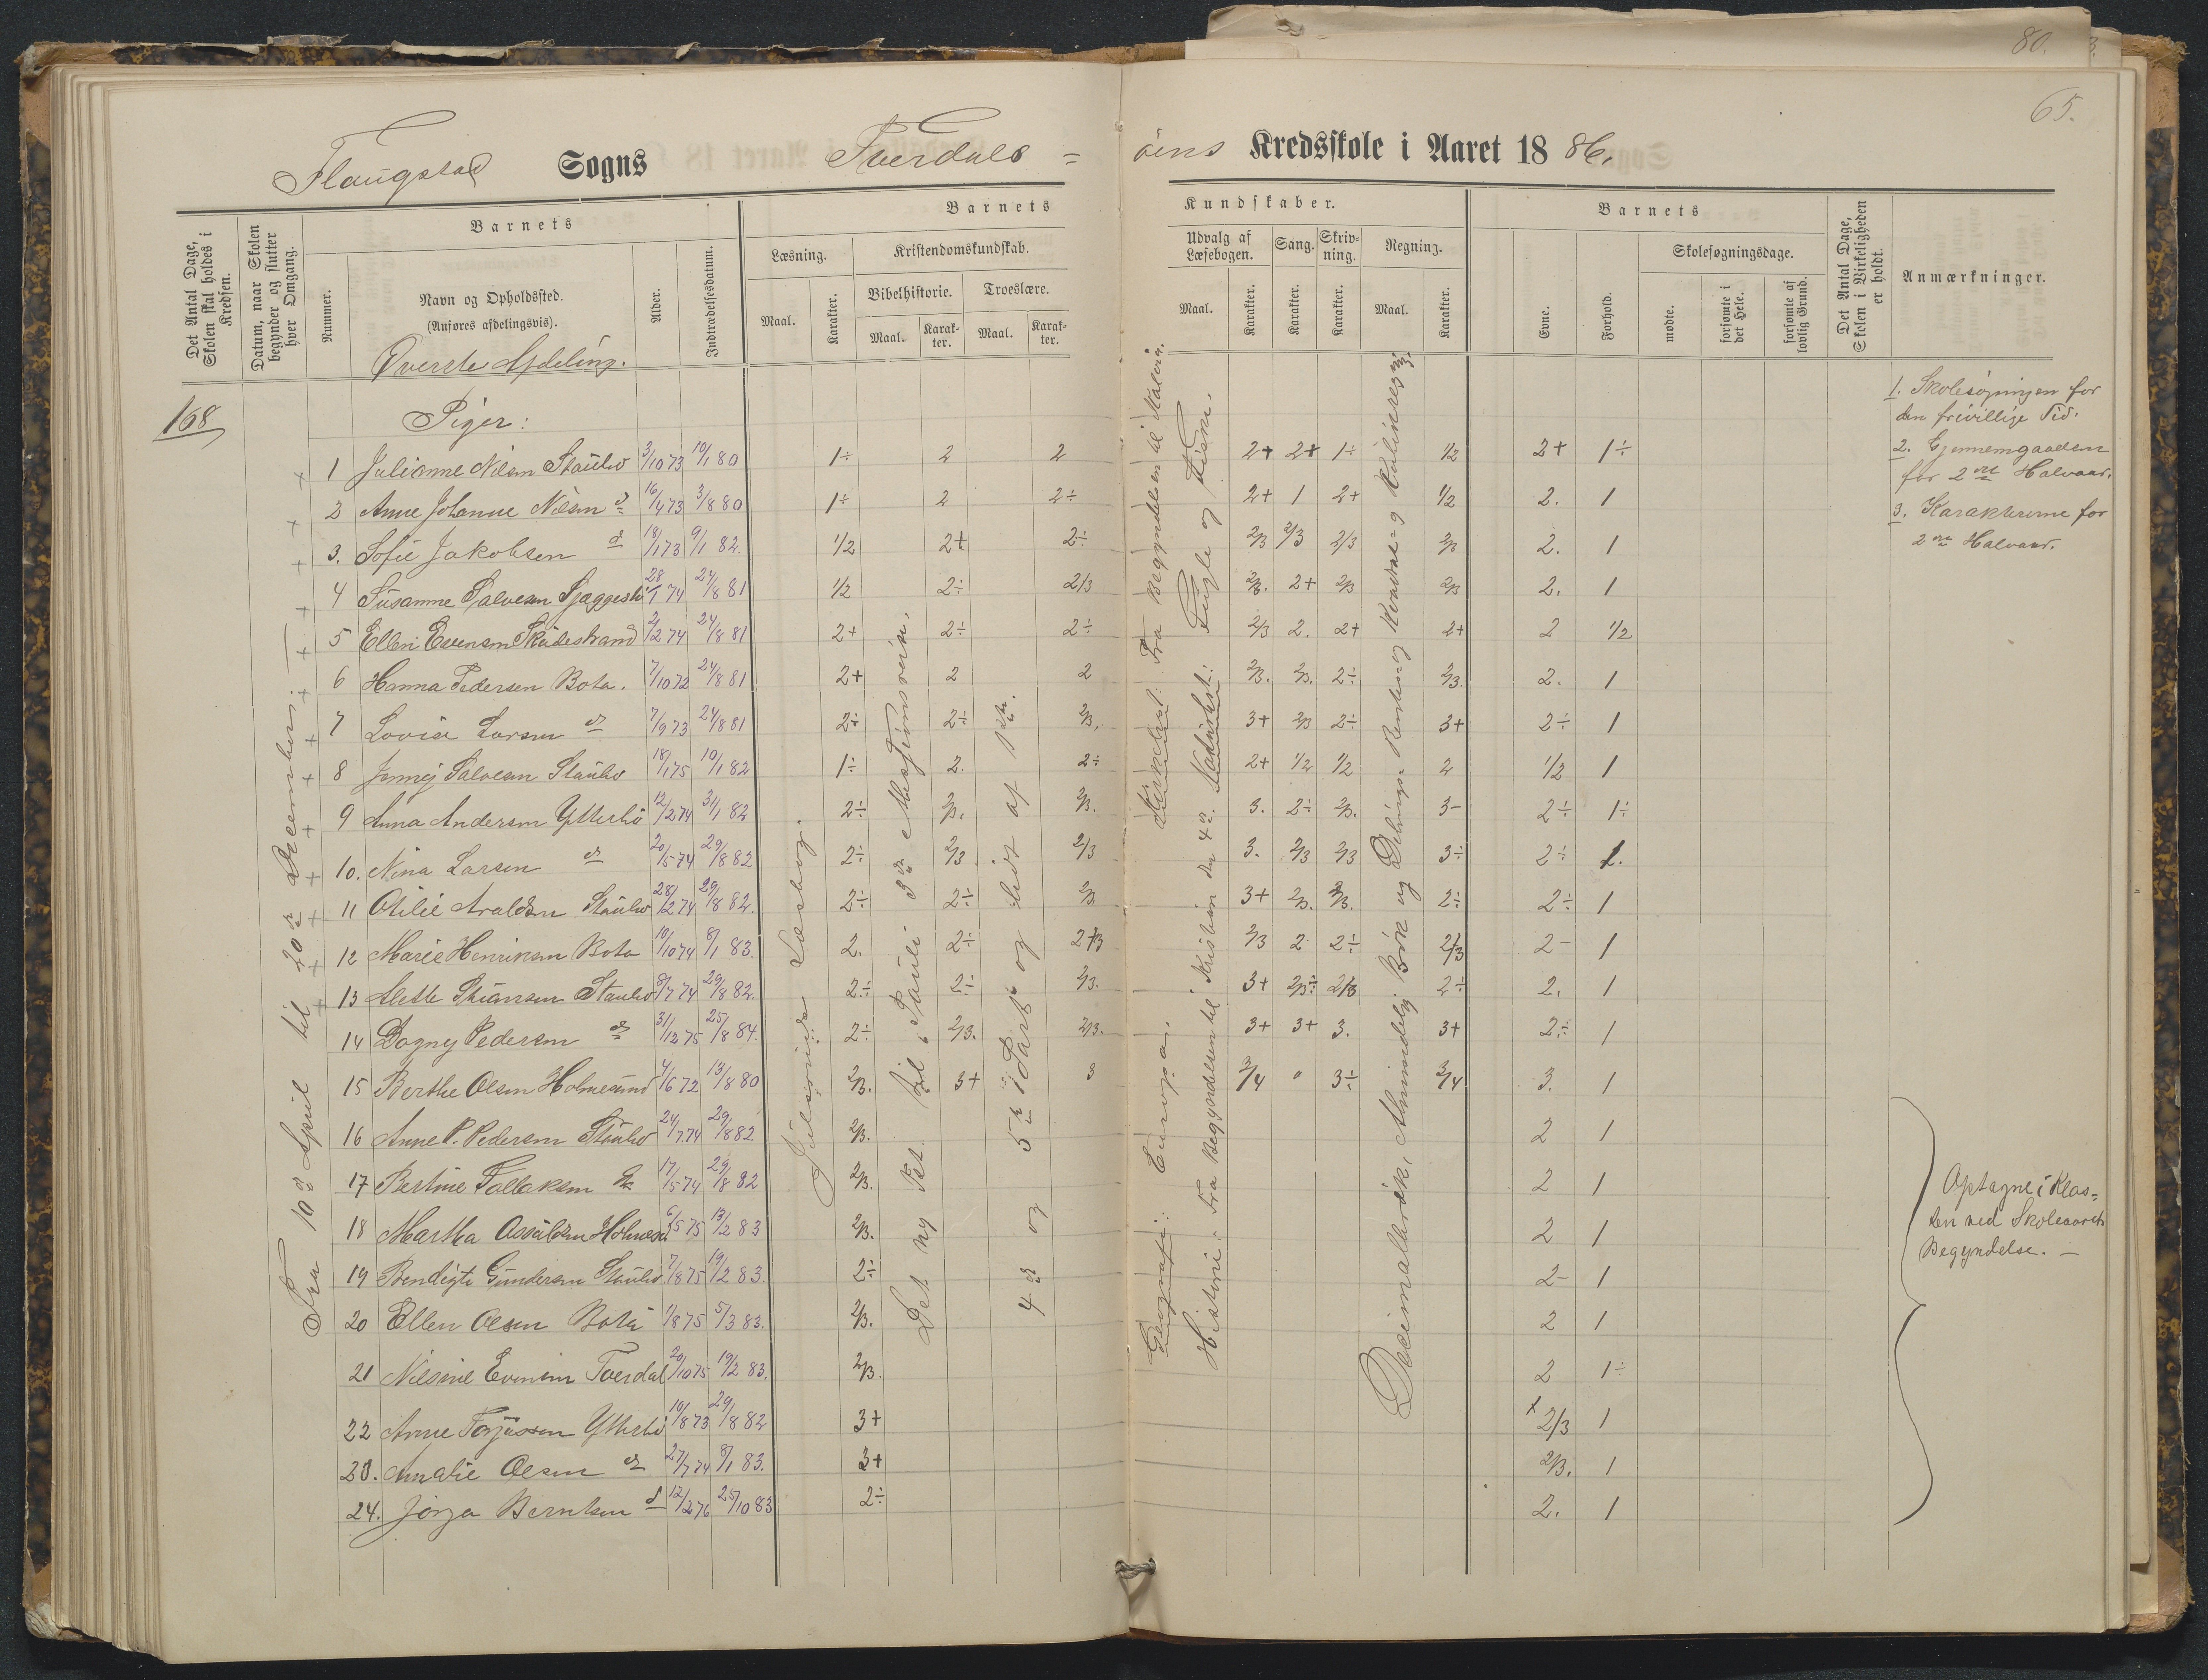 80.
65.
Flaugstad Sogns Tverdals =
öens Kredsskole i Aaret 18 86.
Det Antal Dage, Skolen skal holdes i Kredsen.
Datum, naar Skolen begynder og slutter hver Omgang.
Barnets
Nummer.
Navn og Opholdssted.
(Anføres afdelingsvis).
Øverste Afdeling.
Alder.
Indtrædelsesdatum.
Barnets
Læsning.
Maal.
Karakter.
Kristendomskundskab.
Bibelhistorie.
Maal.
Karakter.
Troeslære.
Maal.
Karakter.
Kundskaber.
Udvalg af Læsebogen.
Maal.
Karakter.
Sang.
Karakter.
Skrivning.
Karakter.
Regning.
Maal.
Karakter.
Barnets
Evne.
Forhold.
Skolesøgningsdage.
mødte.
forsømte i det Hele.
forsømte af lovlig Grund.
Det Antal Dage, Skolen i Virkeligheden er holdt.
Anmærkninger.
168
Piger:
1 Julianne Nilsen Staubø 3/10 73 10/1 80 1÷ 2 2 2+ 2+ 1÷ 1/2 2+ 1÷
2 Anne Johanne Nilsen d 16/4 73 3/8 80 1÷ 2 2÷ 2+ 1 2+ 1/2 2. 1
3. Sofie Jakobsen d 18/1 73 9/1 82. 1/2 2+ 2÷ 2/3 2/3 2/3 2/3 2. 1
4 Susanne Salvesen 28/1 74 24/8 81 1/2 2÷ 2/3 2/3. 2+ 2/3 2/3 2. 1
5 Ellen Evensen Skudestrand 2/2 74 24/8 81 2+ 2÷ 2÷ 2/3 2. 2+ 2+ 2 1/2
6 Hanna Pedersen Bota. 7/10 72 24/8 81 2+ 2 2 2/3. 2/3. 2÷ 2/3. 2. 1
7 Lovise Larsen d 7/9 73 24/8 81 2÷ 2÷ 2/3. 3+ 2/3 2÷ 3+ 2÷ 1
8 Jenney Salvesen Staubø 18/1 75 10/1 82 1÷ 2. 2÷ 2+ 1/2 1/2 2 1/2 1
9 Anna Andersen Ytterbø 12/2 74 31/1 82 2÷ 2/3. 2/3. 3. 2÷ 2/3. 3- 2÷ 1÷
10. Nina Larsen d 20/5 74 29/8 82 2÷ 2/3 2/3 3. 2/3 2/3 3÷ 2÷ 1.
11 Otilie Araldsen Staubø 28/2 74 29/8 82. 2÷ 2÷ 2/3 3+ 2/3. 2/3. 2÷ 2÷ 1
12 Marie Henriksen Bota 10/10 74 8/1 83. 2. 2÷ 2/3 2/3 2 2÷ 2/3 2- 1
13 Alette Stiansen Staubø 8/7 74 29/8 82. 2÷ 2÷ 2/3. 3+ 2/3÷ 2/3 2÷ 2. 1
14 Dagny Pedersen d 31/12 75 25/8 84. 2÷ 2/3. 2/3. 3+ 3+ 3. 3+ 2÷ 1
15 Berthe Olsen Holmesund 4/6 72 13/8 80 2/3. 3+ 3 3/4 " 3÷ 3/4 3. 1
16 Anne P. Pedersen Staubø 24/7 74 29/8 82 2/3. 2 1
17 Bertine Tallaksen 17/5 74 29/8 82 2/3. 2 1
18 Martha Osvaldsen Holmesd 6/5 75 13/2 83 2/3. 2 1
19 Bendigte Gundersen Staubø 7/8 75 19/2 83. 2÷ 2- 1
20 Ellen Olsen Bota 1/8 75 5/3 83. 2/3. 2 1
21 Nilsine Evensen Tverdal 20/10 75 19/2 83. 2/3. 2 1÷
22 Anne Terjussen Ytterbø 10/8 73 29/8 82 3+ 2/3 1
23. Amalie Olsen d 27/7 74 8/1 83. 3+ 2/3. 1
24. Jörga Berntsen d 12/2 76 25/10 83 2÷ 2. 1
Fra 10de April til 20de December:
Læsebog.
Det ny Test. til Pauli 3die Missionsreise.
4de og 5te Part og lidt af 1ste.
Geografi: Europa.
Historie: Fra Begyndelsen til Kristian den 4de
Naturhist: Fugle og Fiske.
Kirkehist: Fra Begyndelsen til
Decimalbrök, Almindelig Brök og Delings- Rentes- og
1. Skolesøgningen for
den frivillige Tid.
2. Gjennemgaaelsen
for 2det Halvaar.
3. Karaktererne for
2det Halvaar.
Optagne i Klas=
sen ved Skoleaarets
Begyndelse. —